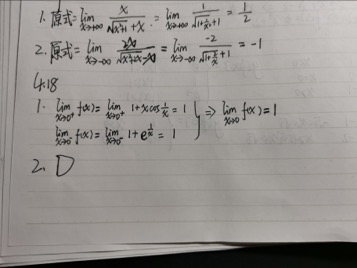 1. 原式=lim_{x→+∞} x/(√(x²+1)+x) = lim_{x→+∞} 1/(√(1+1/x²)+1) = 1/2
2. 原式=lim_{x→-∞} 2x/(√(x²+x)-x) = lim_{x→-∞} -2/(√(1+1/x)+1) = -1
4.18
1. lim_{x→0⁺} f(x) = lim_{x→0⁺} 1+x cos 1/x = 1 } ⇒ lim_{x→0} f(x) = 1
lim_{x→0⁻} f(x) = lim_{x→0⁻} 1+e^{1/x} = 1
2. D